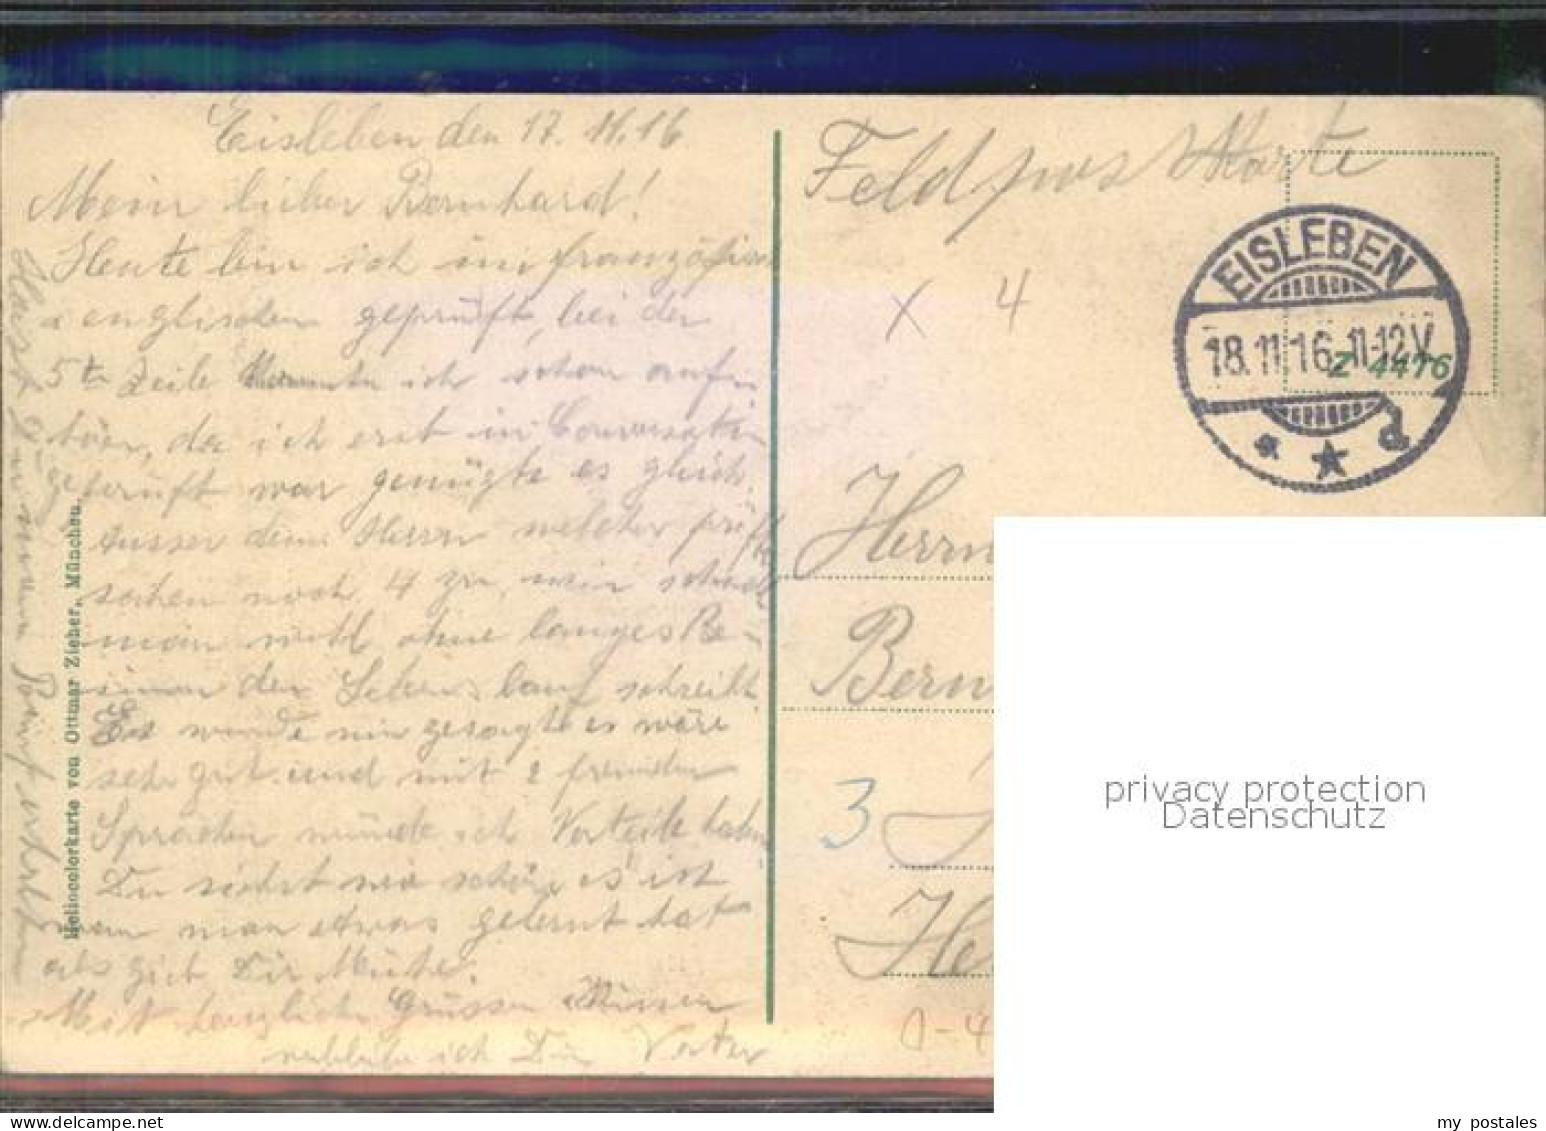 Eisleben den 17.11.16
Mein lieber Bernhard!
Heute bin ich im französischen
u englischen geprüft, bei der
5ten Zeile konnte ich schon aufhören
hören, da ich erst in Conversation
geprüft war genügte es gleich.
Ausser dem Herrn welcher prüfte
sahen noch 4 zu, wie schnell
man wohl ohne langes Be-
sinnen den Lebenslauf schreibt.
Es wurde mir gesagt es wäre
sehr gut und mit 2 fremden
Sprachen würde ich Vorteile haben
Du siehst wie schön es ist
wenn man etwas gelernt hat
also gieb Dir Mühe.
Mit herzlichen Grüssen u Küssen
verbleibe ich Dein Vater
Hast Du meinen Brief erhalten
Heliocolorkarte von Ottmar Zieher, München.
Feldpostkarte
X 4
EISLEBEN
18.11.16.11-12V.
* d
Z 4476
Herrn
Bern
3
He
privacy protection
Datenschutz
my postales